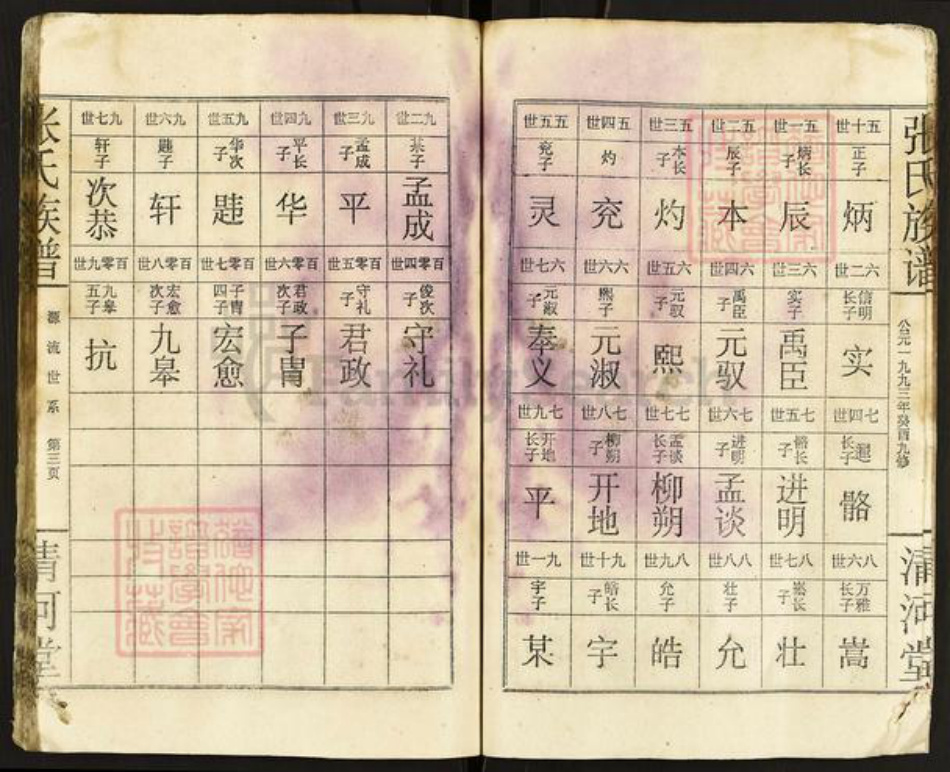 张氏族谱
公元一九九三年癸酉九修
清河堂
五十世 五一世 五二世 五三世 五四世 五五世
正子 炳长子 辰子 本长子 灼 兖子
炳 辰 本 灼 兖 灵
六二世 六三世 六四世 六五世 六六世 六七世
信明长子 实子 禹臣子 元驭子 熙子 元淑子
实 禹臣 元驭 熙 元淑 奉义
七四世 七五世 七六世 七七世 七八世 七九世
长子 骼长子 进明子 孟谈长子 柳朔子 开地长子
骼 进明 孟谈 柳朔 开地 平
八六世 八七世 八八世 八九世 九十世 九一世
万雅长子 嵩长子 壮子 允子 皓长子 宇子
嵩 壮 允 皓 宇 某
九二世 九三世 九四世 九五世 九六世 九七世
某子 孟成子 平长子 华次子 韪子 轩子
孟成 平 华 韪 轩 次恭
百零四世 百零五世 百零六世 百零七世 百零八世 百零九世
俊次子 守礼子 君政次子 子胄四子 宏愈次子 九皋五子
守礼 君政 子胄 宏愈 九皋 抗
张氏族谱
源流世系 第三页
清河堂
FamilySearch